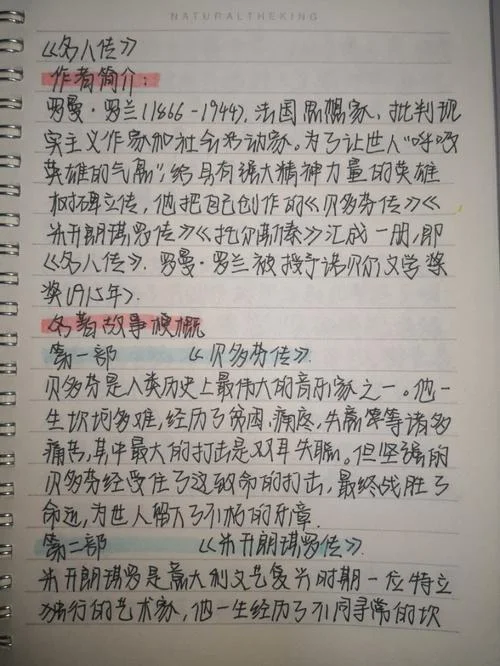 NATURALTHEKING
《名人传》
作者简介：
罗曼·罗兰(1866-1944)，法国思想家，批判现
实主义作家和社会活动家。为了让世人"呼吸
英雄的气息"，给具有强大精神力量的英雄
树碑立传，他把自己创作的《贝多芬传》《
米开朗琪罗传》《托尔斯泰》汇成一册，即
《名人传》. 罗曼·罗兰被授予诺贝尔文学奖
奖(1915年).
名著故事梗概
第一部 《贝多芬传》.
贝多芬是人类历史上最伟大的音乐家之一。他一
生坎坷多难，经历了贫困、病疼、失恋等等诸多
痛苦，其中最大的打击是双耳失聪。但坚强的
贝多芬经受住了这致命的打击，最终战胜了
命运，为世人留下了不朽的乐章.
第二部 《米开朗琪罗传》.
米开朗琪罗是意大利文艺复兴时期一位特立
独行的艺术家，他一生经历了不同寻常的坎